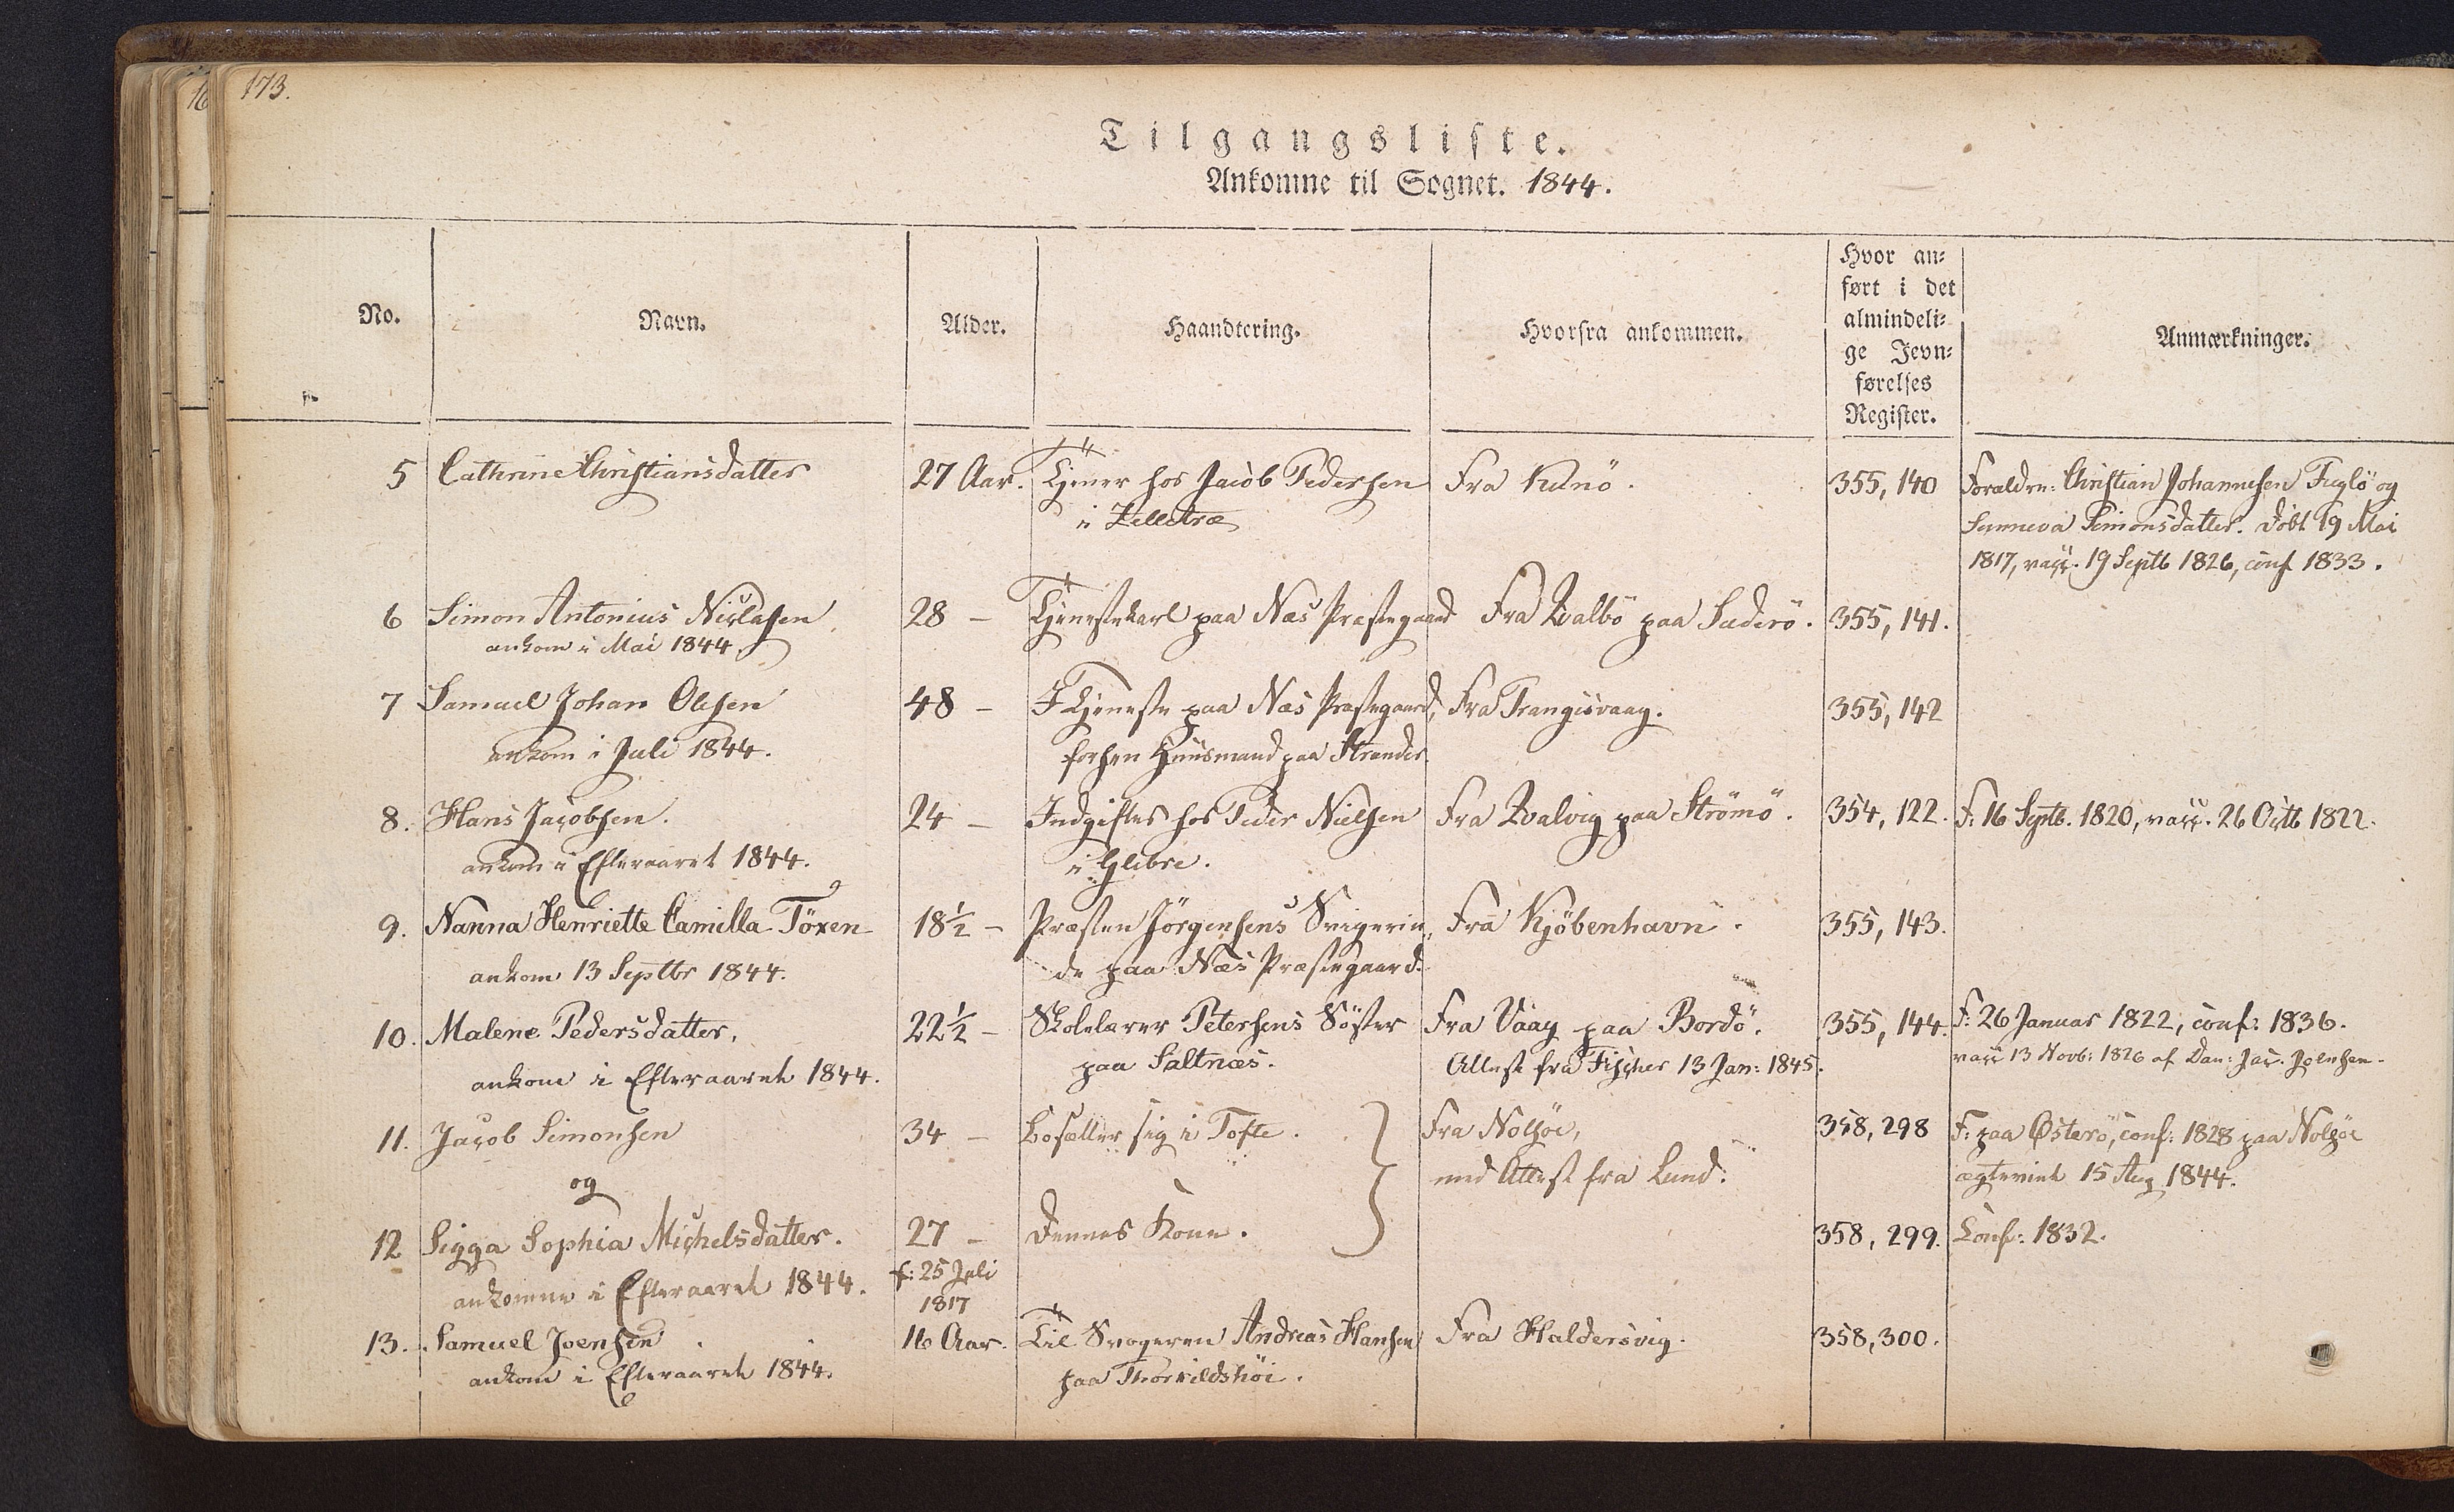 173.
Tilgangsliste.
Ankomne til Sognet. 1844.
No.
Navn.
Alder.
Haandtering.
Hvorfra ankommen.
Hvor an=
ført i det
almindeli=
ge Jevn=
førelses
Register.
Anmærkninger.
5 Cathrine Christiansdatter 27 Aar. Tjener hos Jacob Pedersen Fra Kunö. 355, 140 Forældre: Christian Johannesen Fuglö og
i Lelletræ Sunneva Simonsdatter. Döbt 19 Mai
1817, vacc. 19 Septb 1826, conf 1833.
6 Simon Antonius Niclasen 28 – Tjenestekarl paa Næs Præstegaard Fra Qvalbö paa Suderö. 355, 141.
ankom i Mai 1844
7 Samuel Johan Olesen 48 – I Tjeneste paa Næs Præstegaard, Fra Trangisvaag. 355, 142
ankom i Juli 1844. forhen Huusmand paa Strender.
8. Hans Jacobsen. 24 – Indgiftes hos Peder Nielsen Fra Qvalvig paa Strömö. 354, 122. F. 16 Septb. 1820, vacc. 26 Octb 1822.
ankom i Efteraaret 1844. i Glibre.
9. Nanna Henriette Camilla Töxen 18½ – Præsten Jörgensens Svigerin= Fra Kjöbenhavn. 355, 143.
ankom 13 Septbr 1844. de paa Næs Præstegaard.
10. Malene Pedersdatter, 22½ – Skolelærer Petersens Söster Fra Vaag paa Bordö. 355, 144. F: 26 Januar 1822, conf: 1836.
ankom i Efteraaret 1844. paa Saltnæs. Attest fra Fischer 13 Jan: 1845. vacc 13 Novb: 1826 af Dan: Jac. Joensen.
11. Jacob Simonsen 34 – bosætter sig i Tofte. Fra Nolsöe, 358, 298 F: paa Österö, conf: 1828 paa Nolsöe
og med Attest fra Lund. ægteviet 15 Aug 1844.
12 Sigga Sophia Michelsdatter. 27 – Dennes Kone. 358, 299. Conf: 1832.
ankomne i Efteraaret 1844. f: 25 Juli
1817
13. Samuel Joensen 16 Aar. Til Svogeren Andreas Hansen Fra Haldersvig. 358, 300.
ankom i Efteraaret 1844. paa Thorvildshöi.